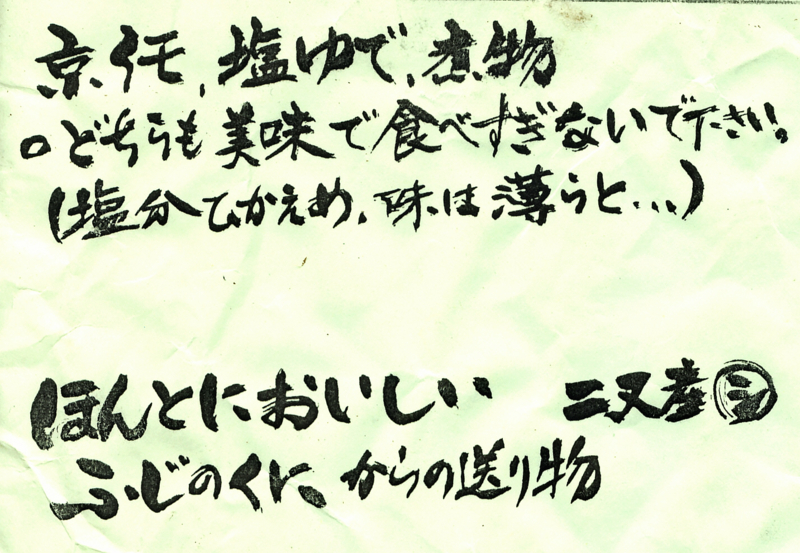 京イモ、塩ゆで、煮物
○どちらも美味で食べすぎないで下さい。
(塩分ひかえめ、味は薄らと...)
ほんとにおいしい 二又産
ふじのくに、からの送り物